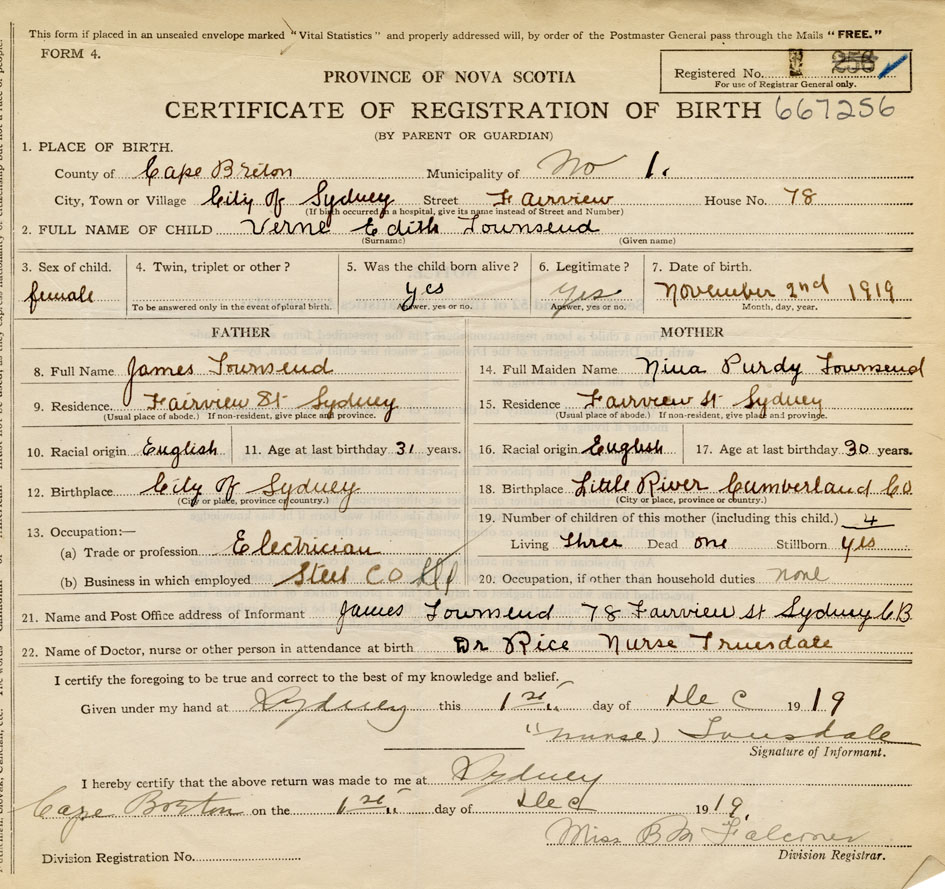 This form if placed in an unsealed envelope marked "Vital Statistics" and properly addressed will, by order of the Postmaster General pass through the Mails "FREE."
FORM 4.
Registered No. 256
For use of Registrar General only.
PROVINCE OF NOVA SCOTIA
CERTIFICATE OF REGISTRATION OF BIRTH 667256
(BY PARENT OR GUARDIAN)
1. PLACE OF BIRTH.
County of Cape Breton Municipality of No 1.
City, Town or Village City of Sydney Street Fairview House No. 78
(If birth occurred in a hospital, give its name instead of Street and Number)
2. FULL NAME OF CHILD Verne Edith Townsend
(Surname) (Given name)
3. Sex of child. 4. Twin, triplet or other? 5. Was the child born alive? 6. Legitimate? 7. Date of birth.
female yes yes November 2nd 1919
To be answered only in the event of plural birth. Answer, yes or no. Answer, yes or no. Month, day, year.
FATHER MOTHER
8. Full Name James Townsend 14. Full Maiden Name Nina Purdy Townsend
9. Residence. Fairview St Sydney 15. Residence Fairview st Sydney
(Usual place of abode.) If non-resident, give place and province. (Usual place of abode.) If non-resident, give place and province.
10. Racial origin English 11. Age at last birthday 31 years. 16. Racial origin English 17. Age at last birthday 30 years.
12. Birthplace City of Sydney 18. Birthplace Little River Cumberland Co
(City or place, province or country.) (City or place, province or country.)
13. Occupation:— 19. Number of children of this mother (including this child.) 4
(a) Trade or profession Electrician Living three Dead one Stillborn yes
(b) Business in which employed Steel Co 20. Occupation, if other than household duties none
21. Name and Post Office address of Informant James Townsend 78 Fairview st Sydney C B
22. Name of Doctor, nurse or other person in attendance at birth Dr Rice Nurse Truesdale
I certify the foregoing to be true and correct to the best of my knowledge and belief.
Given under my hand at Sydney this 1st day of Dec 1919
(Nurse)
Signature of Informant.
I hereby certify that the above return was made to me at Sydney
Cape Breton on the 1st day of Dec 1919.
Miss B M Falconer
Division Registration No. Division Registrar.